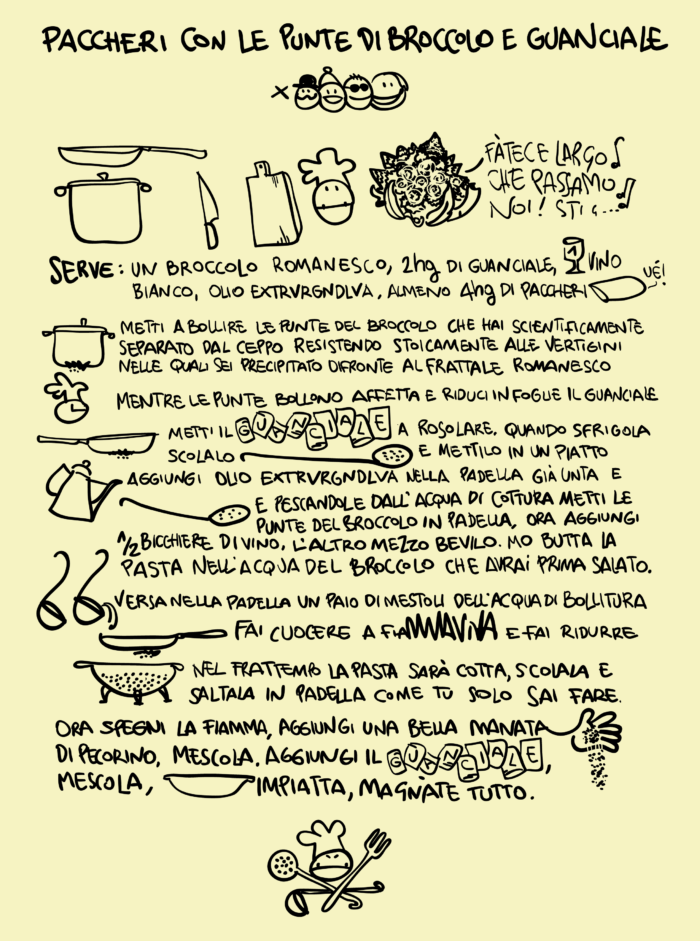 PACCHERI CON LE PUNTE DI BROCCOLO E GUANCIALE
×
FÀTECE LARGO
CHE PASSAMO
NOI! STI G...
SERVE: UN BROCCOLO ROMANESCO, 2hg DI GUANCIALE, 1 VINO
BIANCO, OLIO EXTRVRGNDLVA, ALMENO 4hg DI PACCHERI UÉ!
METTI A BOLLIRE LE PUNTE DEL BROCCOLO CHE HAI SCIENTIFICAMENTE
SEPARATO DAL CEPPO RESISTENDO STOICAMENTE ALLE VERTIGINI
NELLE QUALI SEI PRECIPITATO DIFRONTE AL FRATTALE ROMANESCO
MENTRE LE PUNTE BOLLONO AFFETTA E RIDUCI IN FOGUE IL GUANCIALE
METTI IL GUANCIALE A ROSOLARE, QUANDO SFRIGOLA
SCOLALO E METTILO IN UN PIATTO
AGGIUNGI OLIO EXTRVRGNDLVA NELLA PADELLA GIÀ UNTA E
E PESCANDOLE DALL'ACQUA DI COTTURA METTI LE
PUNTE DEL BROCCOLO IN PADELLA, ORA AGGIUNGI
1/2 BICCHIERE DI VINO, L'ALTRO MEZZO BEVILO. MO BUTTA LA
PASTA NELL'ACQUA DEL BROCCOLO CHE AVRAI PRIMA SALATO.
VERSA NELLA PADELLA UN PAIO DI MESTOLI DELL'ACQUA DI BOLLITURA
FAI CUOCERE A FIAMMAVIVA E FAI RIDURRE
NEL FRATTEMPO LA PASTA SARÀ COTTA, SCOLALA E
SALTALA IN PADELLA COME TU SOLO SAI FARE.
ORA SPEGNI LA FIAMMA, AGGIUNGI UNA BELLA MANATA
DI PECORINO, MESCOLA, AGGIUNGI IL GUANCIALE,
MESCOLA, IMPIATTA, MAGNÀTE TUTTO.